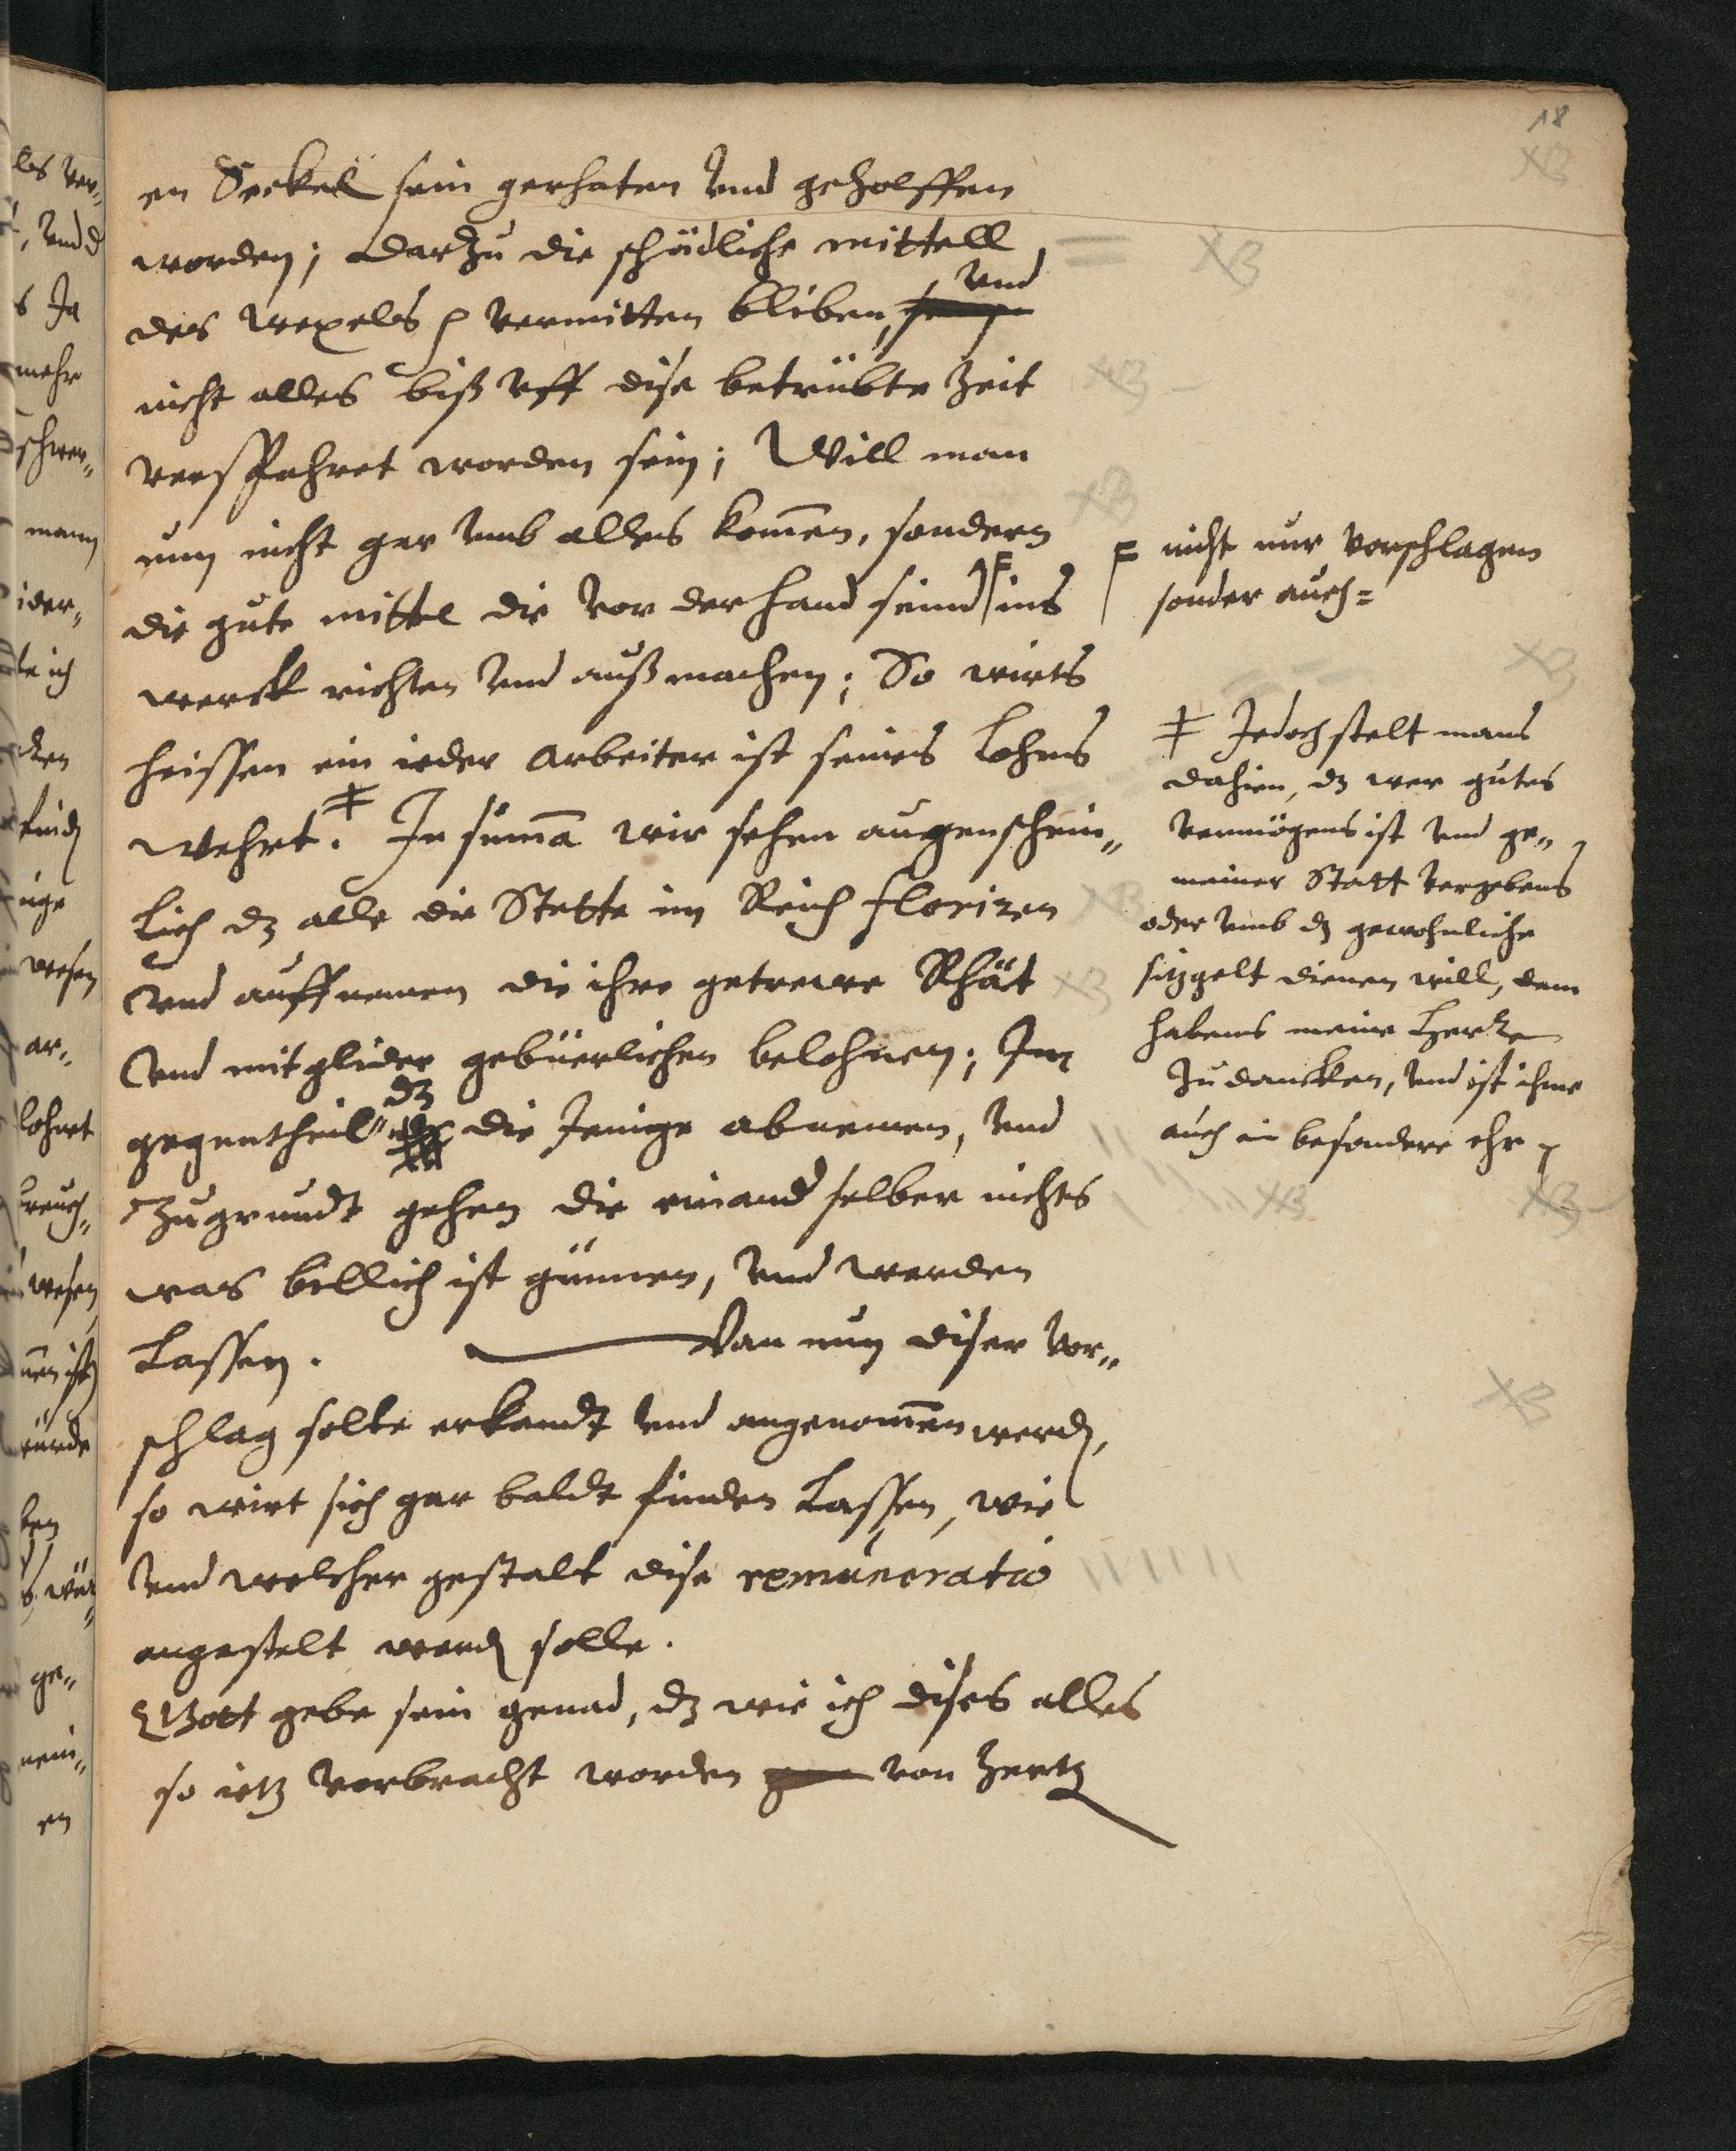 18
en Seckel sein gerhaten vnd geholffen
worden; darzu die schädliche mittell
des wexels vermitten bliben, vnd
nicht alles biß vff dise betrübte zeit
verspahret worden sein; Will man
nun nicht gar vmb alles komen, sondern
die gute mittel die vor der hand seind ins
werck richten vnd außmachen; So wirts
heissen ein ieder arbeiter ist seines Lohns
wehrt. In suma wir sehen augenschein„
lich dz alle die Stette im Reich florizen
vnd auffnemen die ihre getrewe Rhät
vnd mitglider gebüerlichen belohnen; Im
gegentheil dz die Jenige abnemen, vnd
zugrundt gehen die einand selber nichts
was billich ist günnen, vnd werden
Lassen. Wan nun diser vor„
schlag solte erkandt vnd angenomen werd,
so wirt sich gar baldt finden Lassen, wie
vnd welcher gestalt dise remuneratio
angestelt werd solle.
Gott gebe sein genad, dz wie ich dises alles
so ietz vorbracht worden von hertz
nicht nur vorschlagen
sonder auch=
‡ Jedoch stelt mans
dahien, dz wer gutes
vermögens ist vnd ge„
meiner Statt vergebens
oder vmb dz gewohnliche
sitzgelt dienen will, dem
habens meine Herre
zu dancken, vnd ist ihme
auch ein besondere ehr